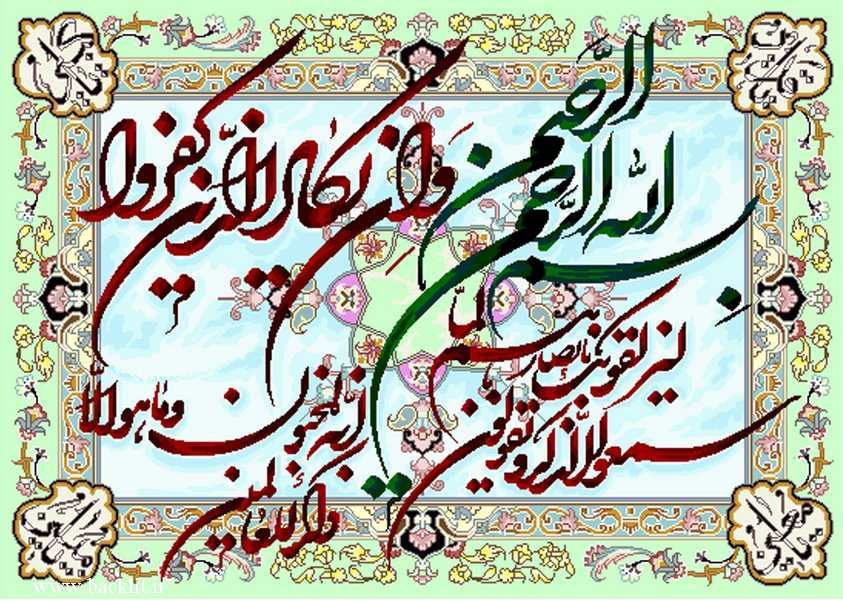 بسم الله الرحمن الرحیم
وَاِن یَکادُ الذین کفروا
لیزلقونک بابصارهم لمّا
سمعوا الذکر و یقولون
انه لمجنون وما هو الّا
ذکر للعالمین